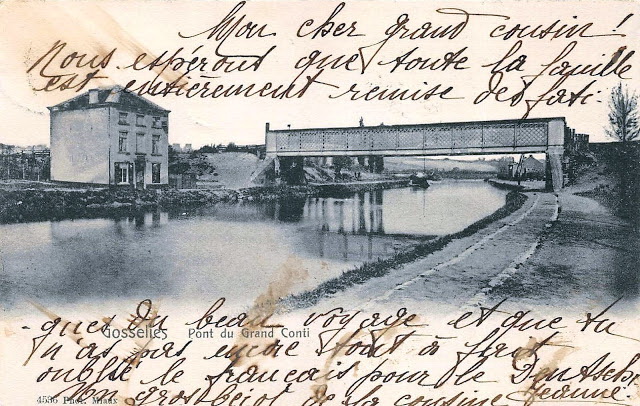 Mon cher grand cousin !
Nous espérons que toute la famille
est entièrement remise des fati-
gues du beau voyage et que tu
Gosselies Pont du Grand Conti
n'as pas encore tout à fait
oublié le français pour le Deutsch.
Un gros béjot de la cousine Jeanne.
4536 Phot. Miaux